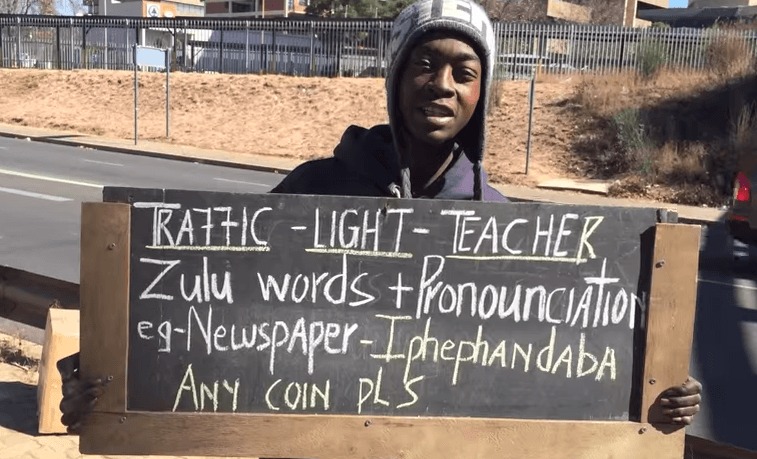 TRAFFIC - LIGHT - TEACHER
Zulu words + Pronounciation
eg - Newspaper - Iphephandaba
ANY COIN PLS